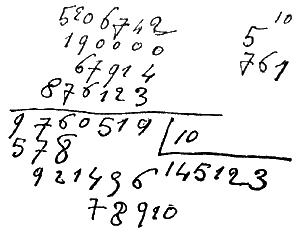 5206742
190000
67914
876123
9760519
578
921496
78910
10
145123
5 10
761